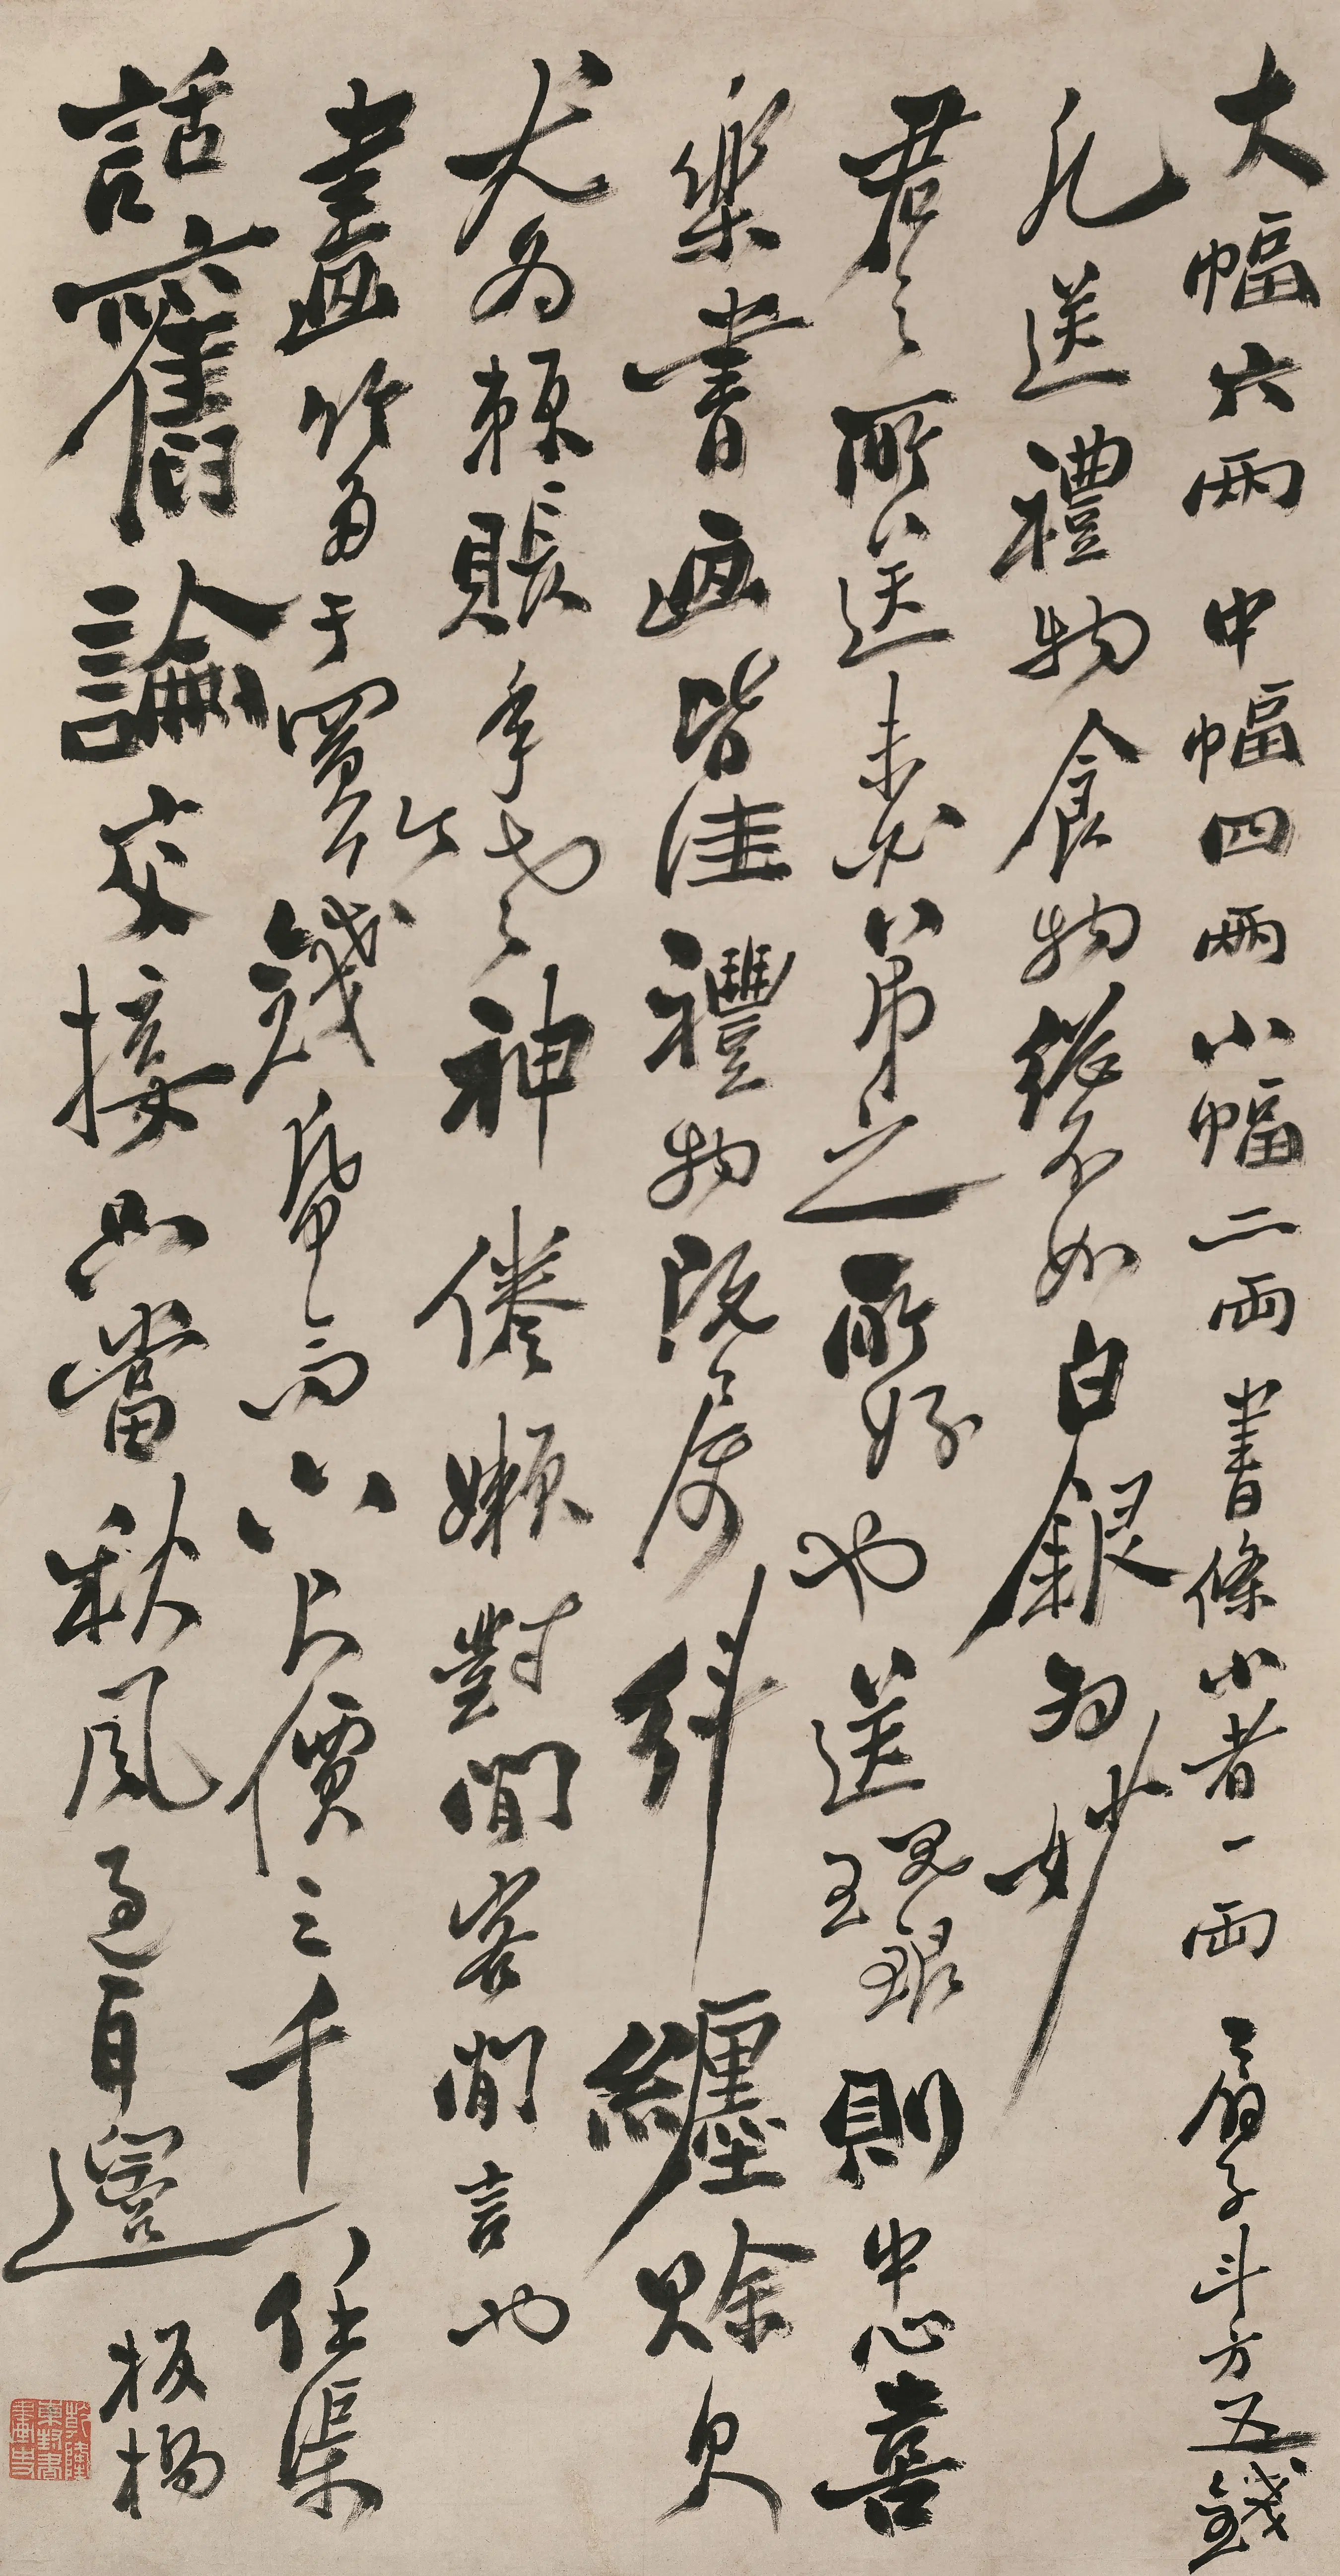 大幅六兩中幅四兩小幅二兩書條小者一兩扇子斗方五錢
凡送禮物食物總不如白銀為妙
君之所送未必弟之所好也送現銀則中心喜
樂書画皆佳禮物既屬糾纏賒欠
尤為賴賬年老神倦嬾對閒客閒言也
畫竹多于買竹錢帋高六尺價三千任渠
話舊論交接只當秋風過耳邊
板橋
乾隆東封書畫史